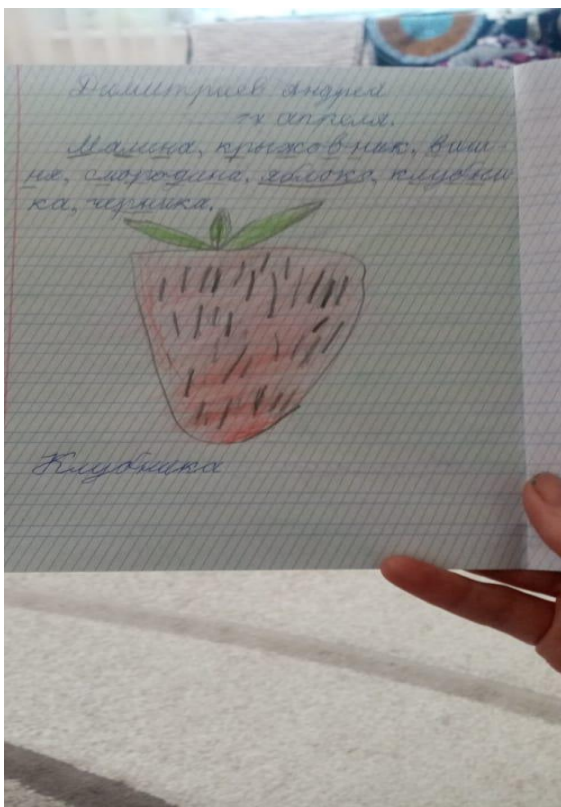 Димитриев Андрей
апреля.
Малина, крыжовник, виш-
ня, смородина, яблоко, клубни
ка, черника.
Клубника